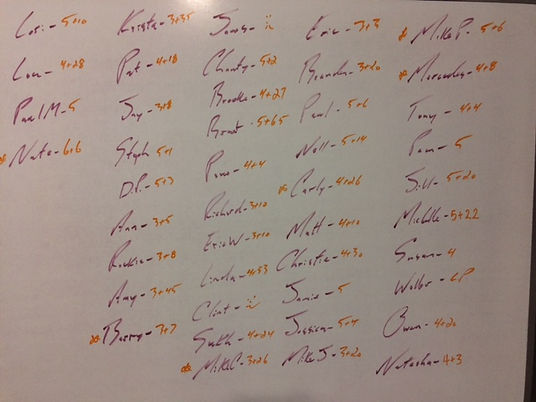 Lori - 5+10
Lou - 4+28
Paul M - 5
* Nate - 6+6
Krista - 3+35
Pat - 4+18
Jay - 3+8
Steph - 5+1
D.P. - 5+3
Ann - 3+5
Rockie - 3+8
Amy - 3+45
* Barry - 3+7
James - ::
Chanty - 5+2
Brooke - 4+27
Brant - 5+65
Pam - 4+4
Richard - 3+10
Eric W - 3+10
Linda - 4+33
Clint - ::
4+24
* Mike C - 3+26
Eric - 3+3
Brandon - 3+20
Paul - 5+6
Nell - 5+14
* Carly - 4+26
Matt - 4+10
Christie - 4+30
Jamie - 5
Jessica - 5+4
Mike J - 3+20
* Mike P. - 5+6
* Mercedes - 4+8
Tony - 4+4
Pam - 5
Jill - 5+20
Michelle - 5+22
Susan - 4
LP
Owen - 4+20
Natasha - 4+3